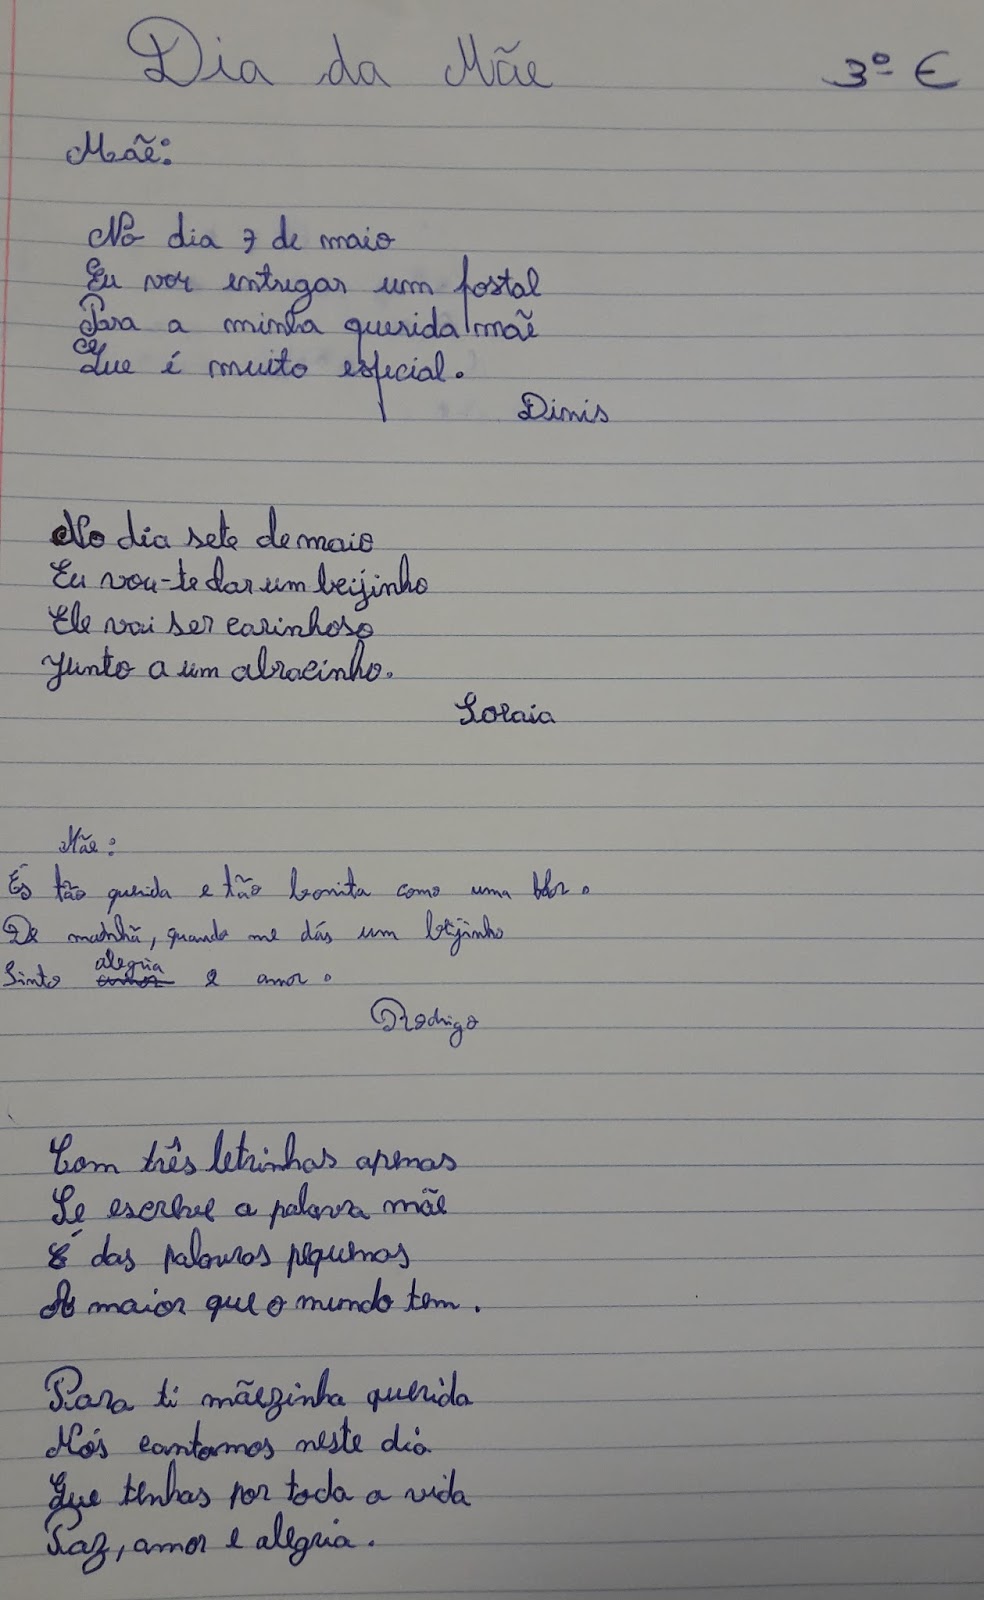 Dia da Mãe 3º E
Mãe:
No dia 7 de maio
Eu vou entregar um postal
Para a minha querida mãe
Que é muito especial.
Dinis
No dia sete de maio
Eu vou-te dar um beijinho
Ele vai ser carinhoso
Junto a um abracinho.
Soraia
Mãe:
És tão querida e tão bonita como uma flor.
De manhã, quando me dás um beijinho
Sinto alegria e amor.
Rodrigo
Com três letrinhas apenas
Se escreve a palavra mãe
É das palavras pequenas
A maior que o mundo tem.
Para ti mãezinha querida
Nós cantamos neste dia
Que tenhas por toda a vida
Paz, amor e alegria.